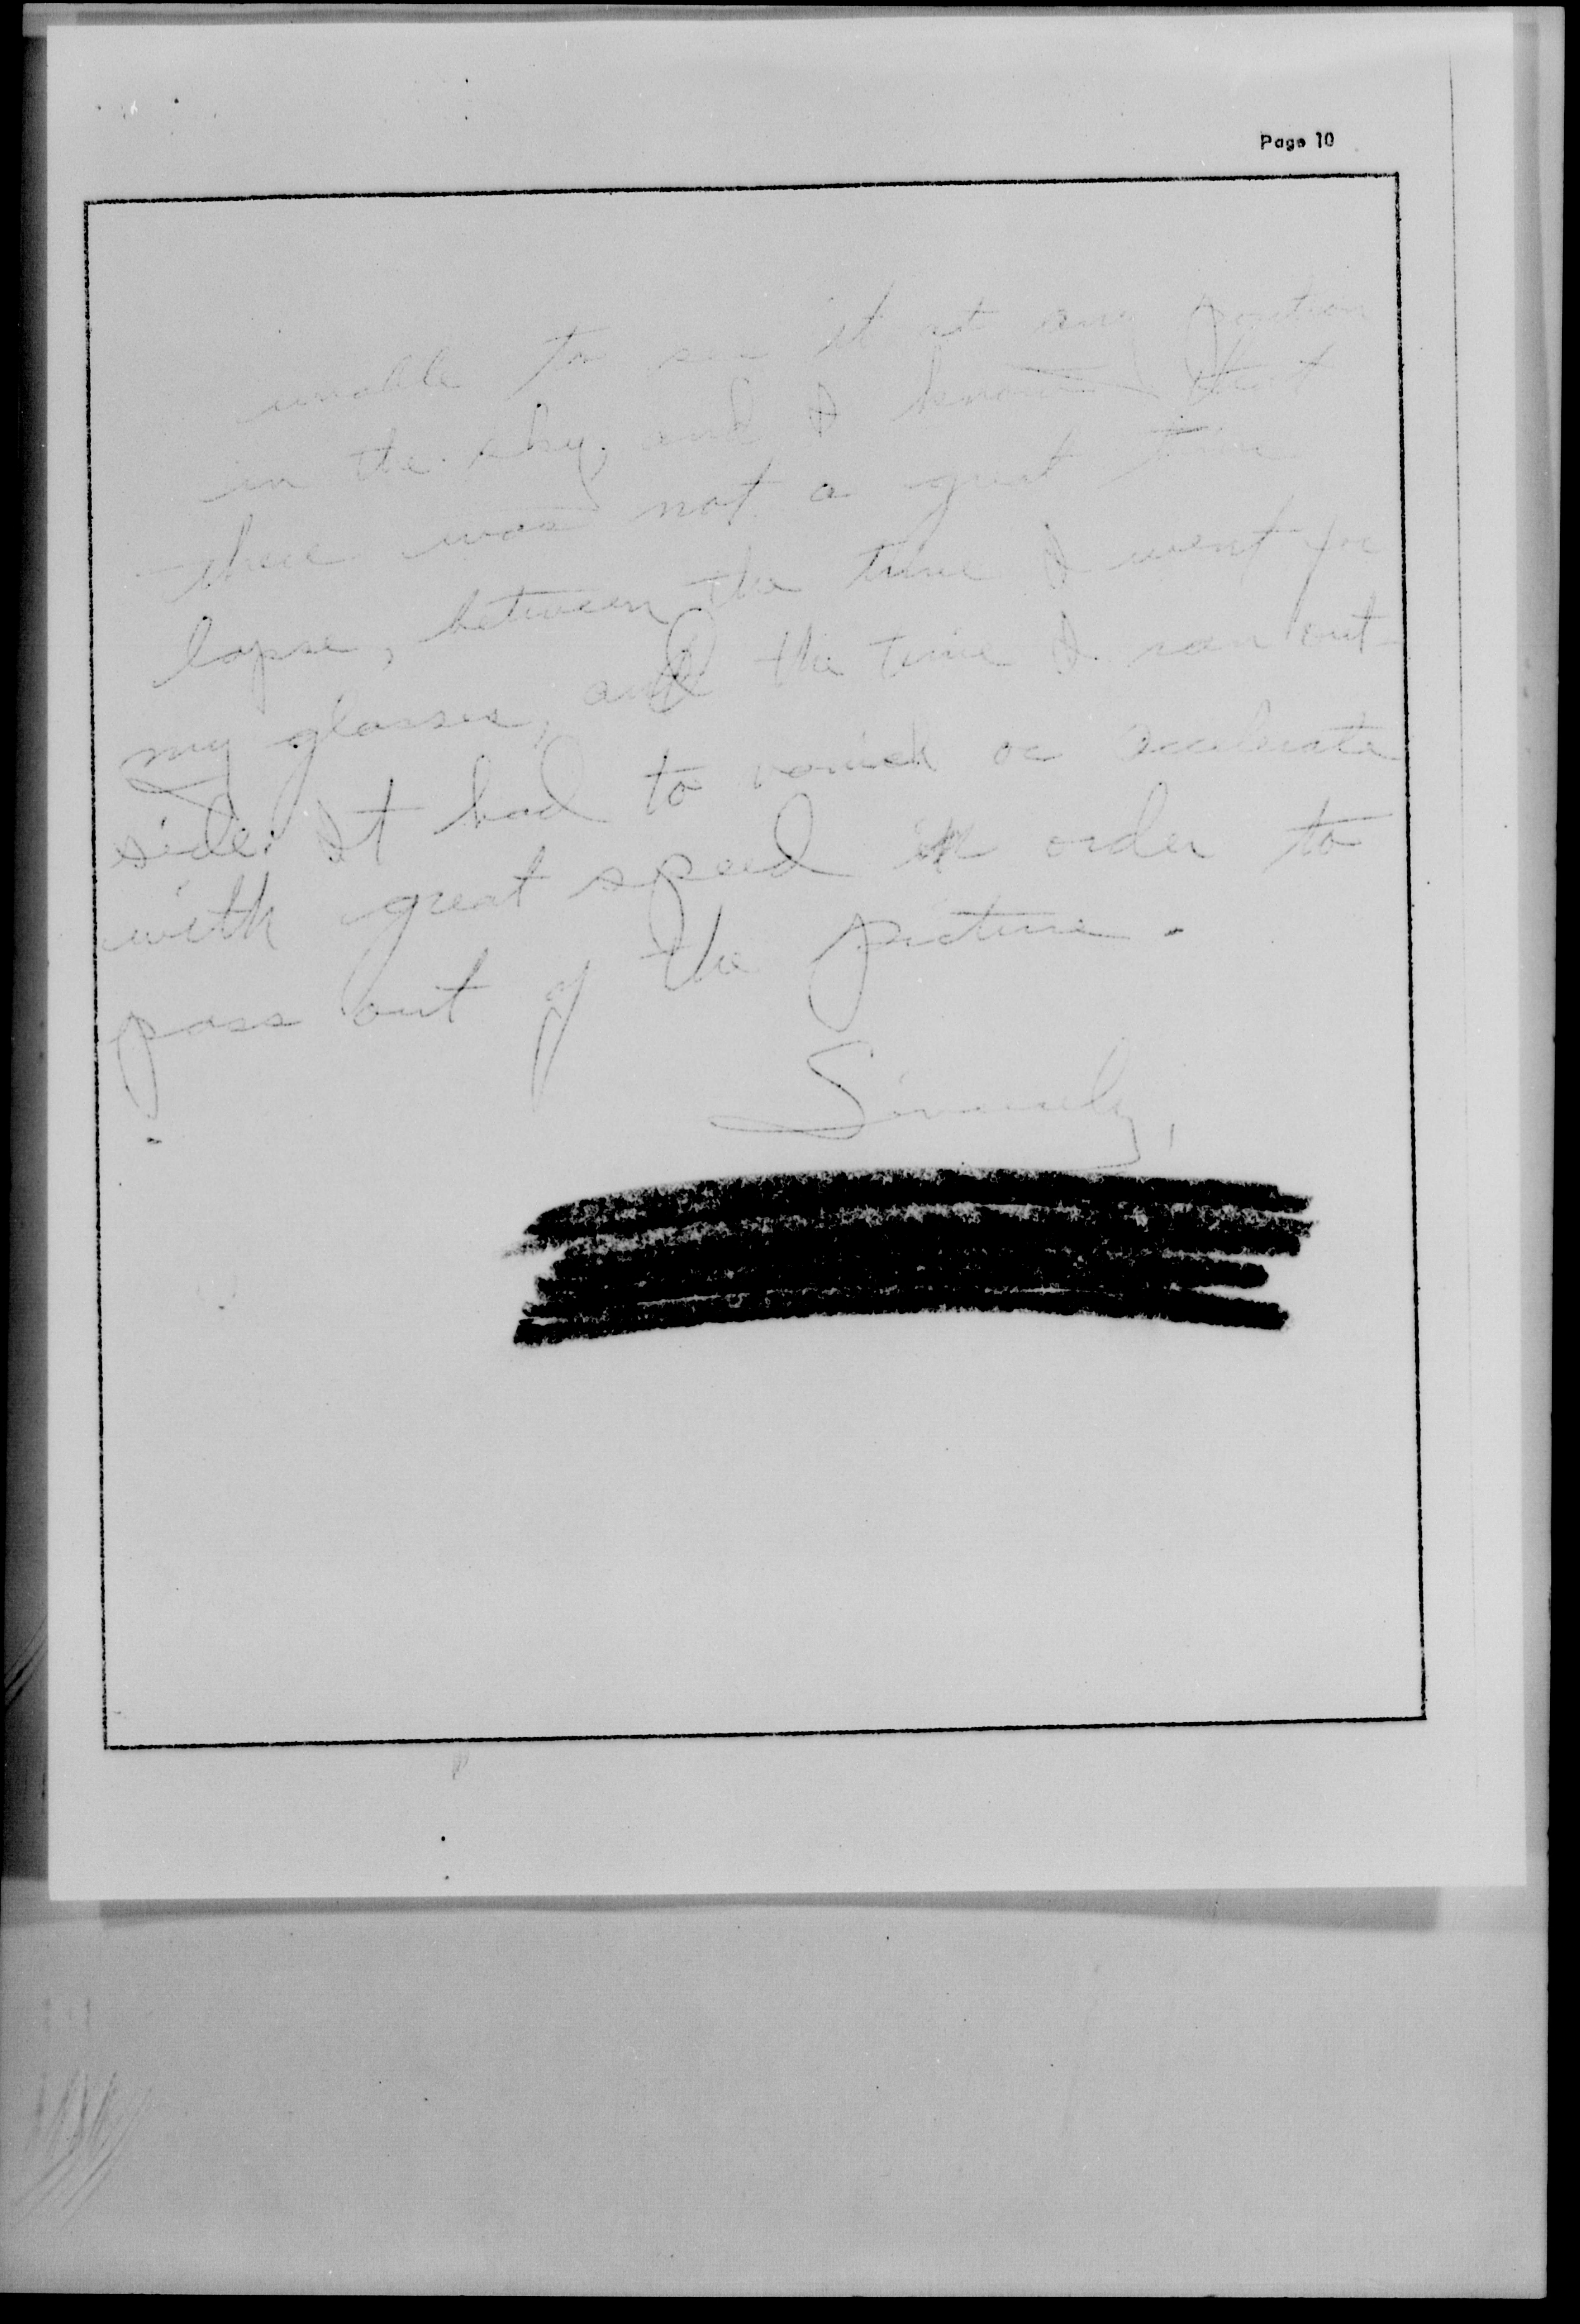 Page 10
unable to see it at any position
in the sky, and I know that
there was not a great time
lapse, between the time I went for
my glasses, and the time I ran out-
side. It had to vanish or accelerate
with great speed in order to
pass out of the picture.
Sincerely,